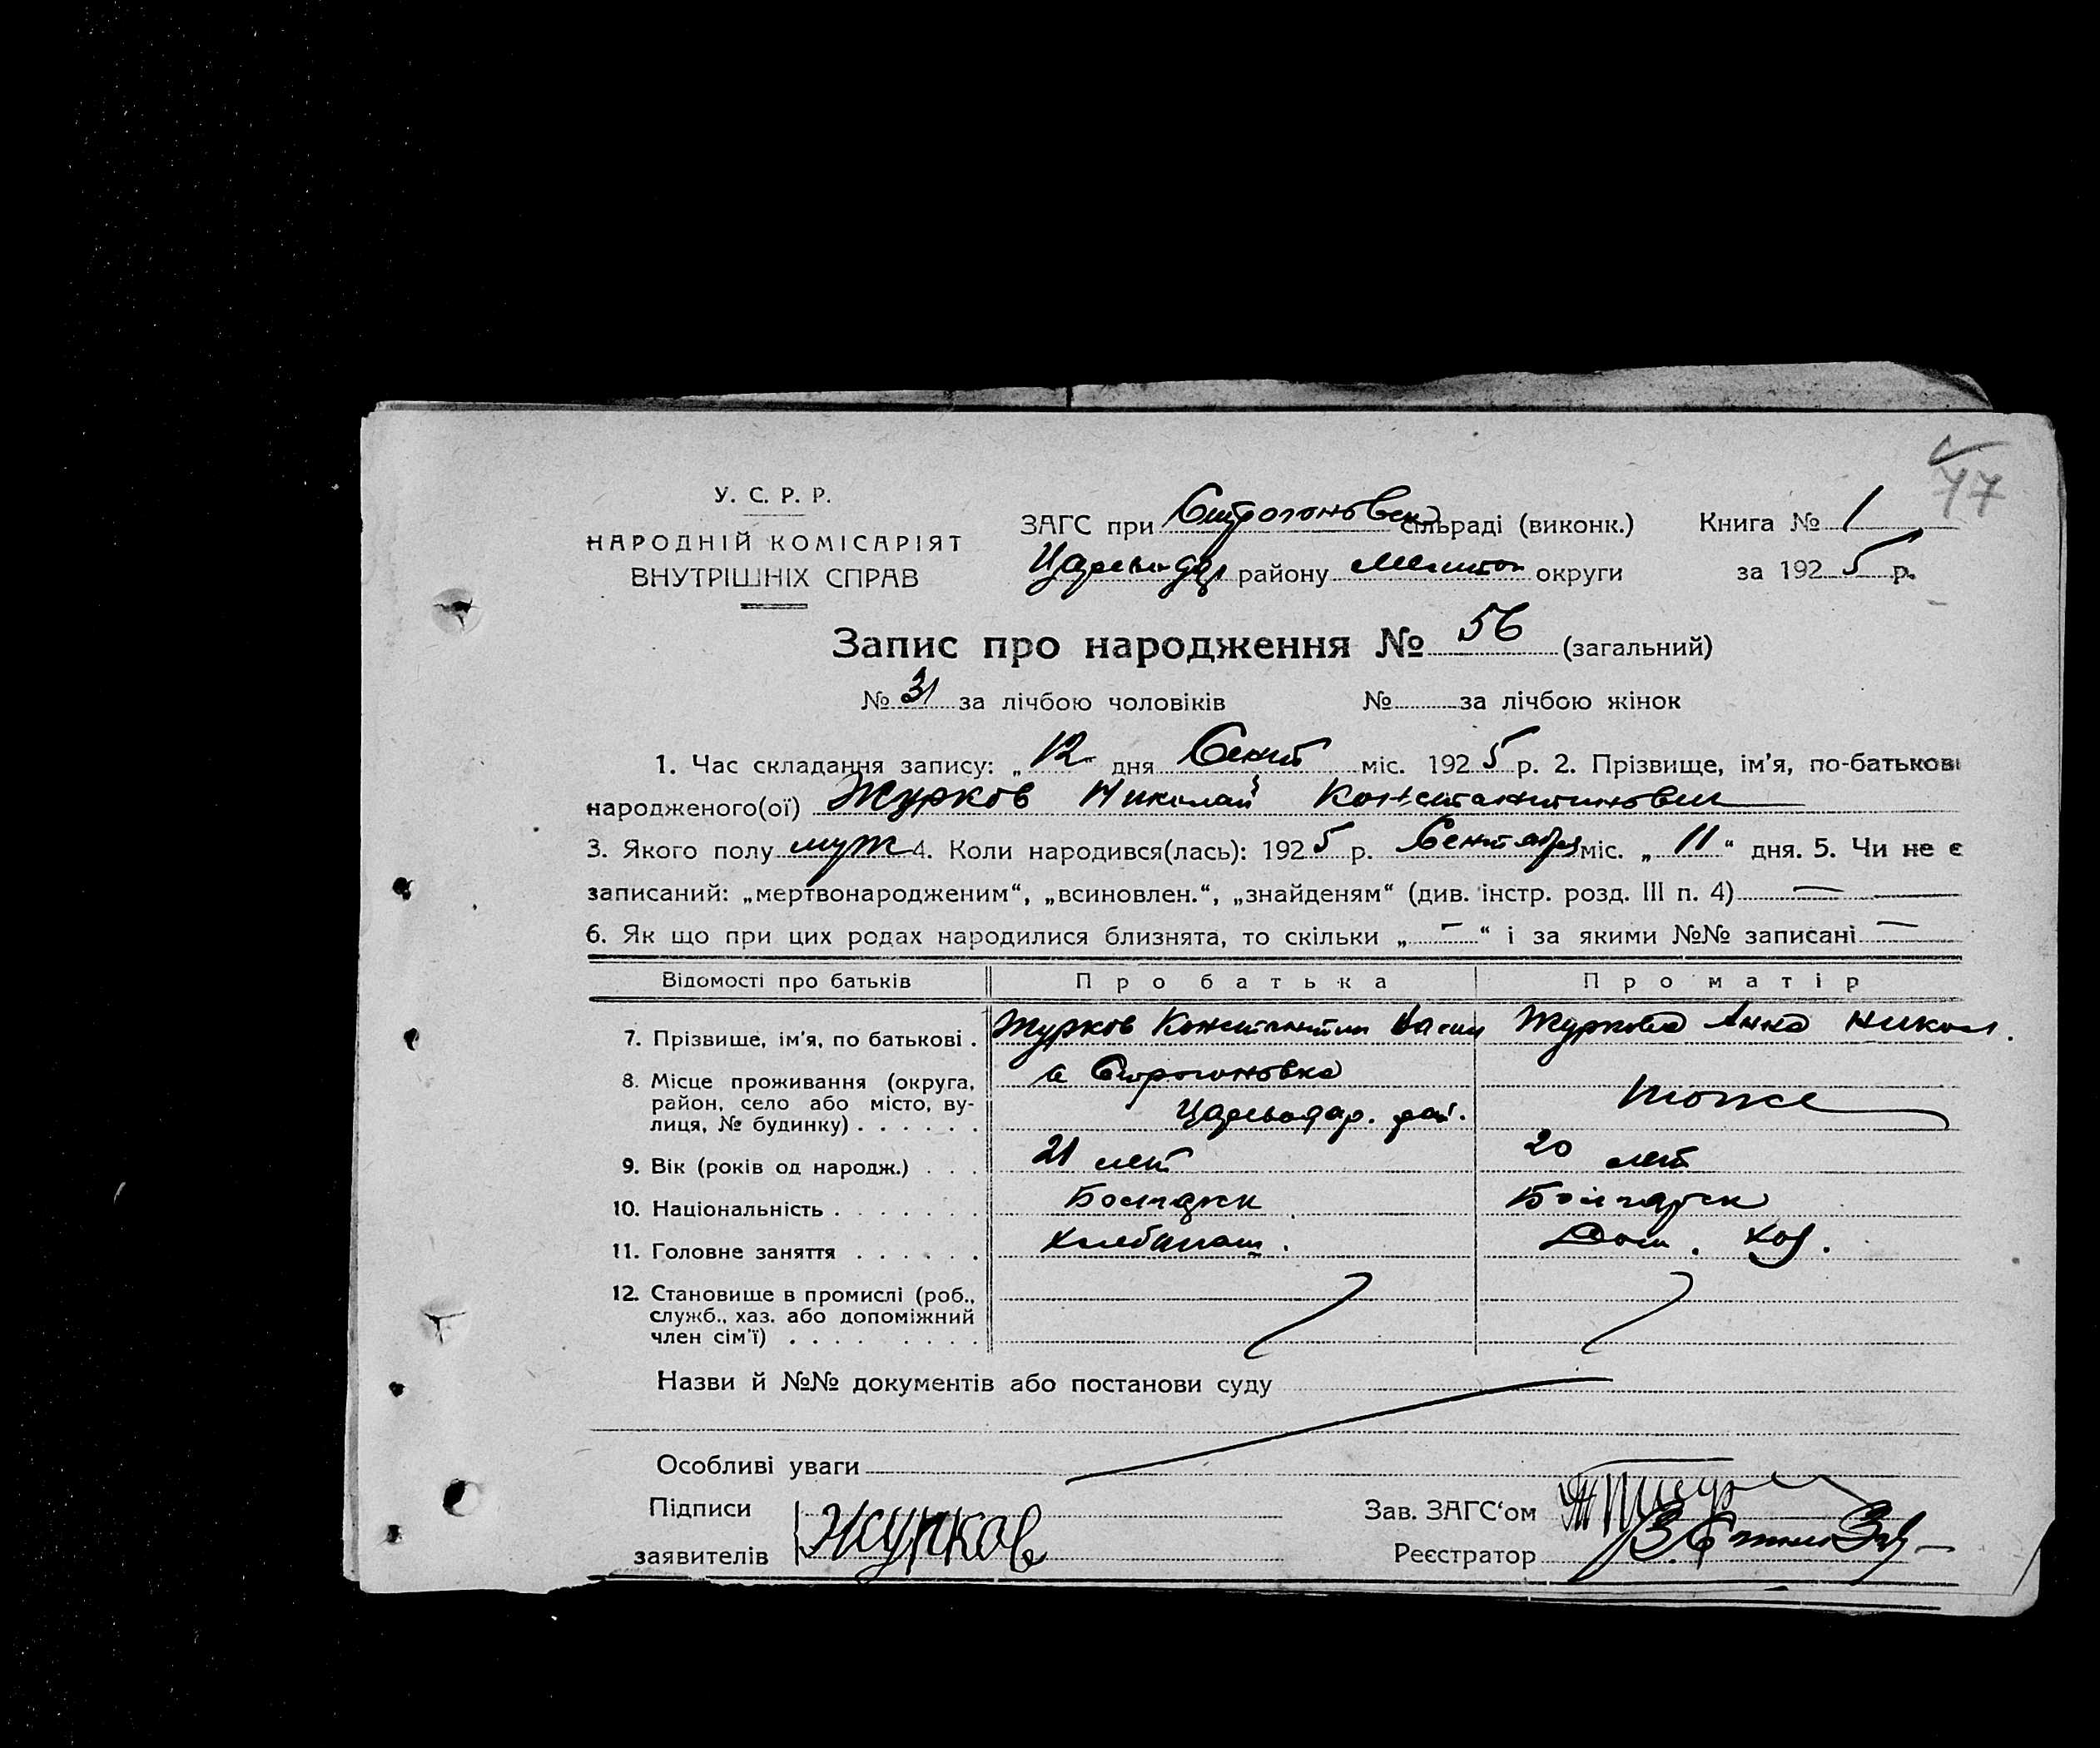 77
У. С. Р. Р.
НАРОДНІЙ КОМІСАРІЯТ
ВНУТРІШНІХ СПРАВ
ЗАГС при Строгоновск сільраді (виконк.) Книга № 1
Цареводар району Мелитоп округи за 1925 р.
Запис про народження № 56 (загальний)
№ 31 за лічбою чоловіків № за лічбою жінок
1. Час складання запису: „12" дня Сент міс. 1925 р. 2. Прізвище, ім'я, по-батькові
народженого(ої) Журков Николай Константинович
3. Якого полу муж 4. Коли народився(лась): 1925 р. Сентября міс. „11" дня. 5. Чи не є
записаний: „мертвонародженим", „всиновлен.", „знайденям" (див. інстр. розд. III п. 4) —
6. Як що при цих родах народилися близнята, то скільки „—" і за якими №№ записані —
Відомості про батьків Про батька Про матір
7. Прізвище, ім'я, по батькові . Журков Константин Васил Журкова Анна Никол.
8. Місце проживання (округа, район, село або місто, вулиця, № будинку) . . . . . . с Строгоновка
Цареводар. рай. тоже
9. Вік (років од народж.) . . . 21 лет 20 лет
10. Національність . . . . . . . Болгарск Болгарск
11. Головне заняття . . . . . . Хлебопаш. Дом. хоз.
12. Становище в промислі (роб., служб., хаз. або допоміжний член сім'ї) . . . . . . . .
Назви й №№ документів або постанови суду
Особливі уваги
Підписи
заявителів Журков
Зав. ЗАГС'ом
Реєстратор